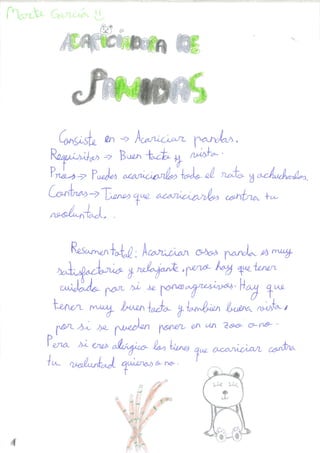 Marta García !!
ACARICIADORA DE
PANDAS
Consiste en → Acariciar pandas.
Requisitos → Buen tacto y vista.
Pros → Puedes acariciarlos todo el rato y achucharlos.
Contras → Tienes que acariciarlos contra tu
voluntad.
Resumen total: Acariciar osos panda es muy
satisfactorio y relajante, pero hay que tener
cuidado por si se ponen agresivos. Hay que
tener muy buen tacto y también buena vista,
por si se pueden poner en un zoo o no.
Pero si eres alérgico los tienes que acariciar contra
tu voluntad quieras o no.